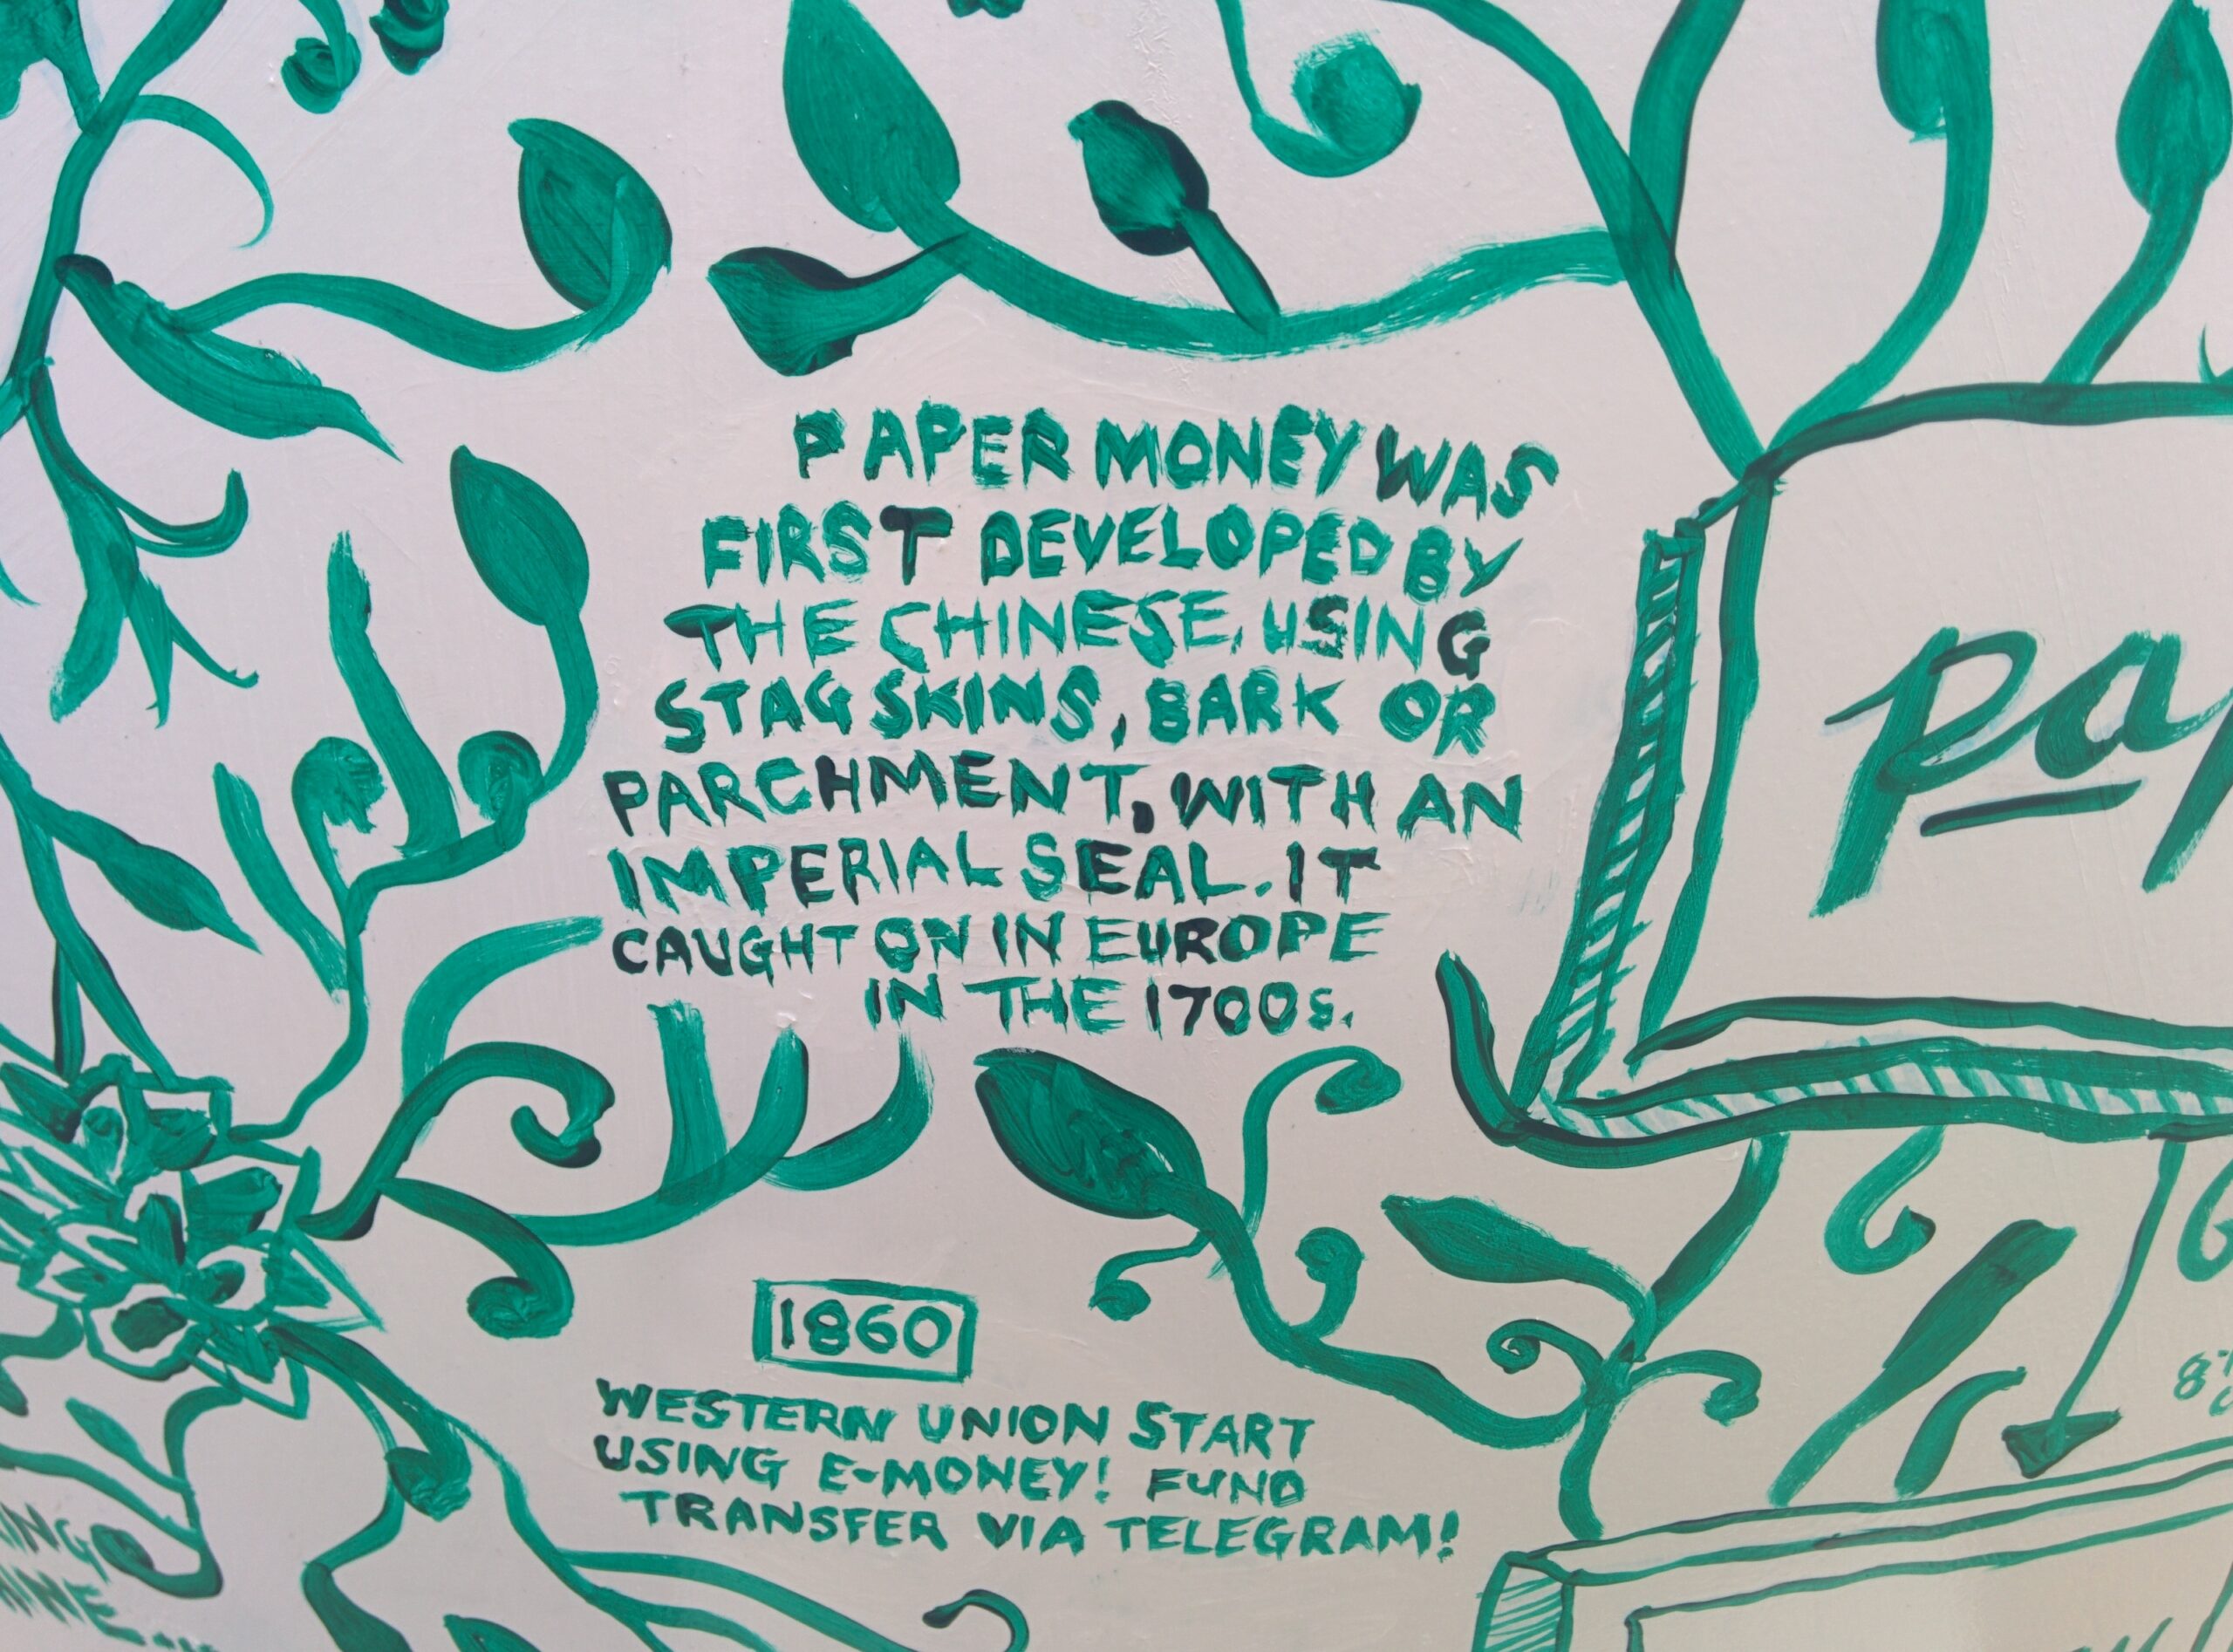 PAPER MONEY WAS
FIRST DEVELOPED BY
THE CHINESE, USING
STAG SKINS, BARK OR
PARCHMENT, WITH AN
IMPERIAL SEAL. IT
CAUGHT ON IN EUROPE
IN THE 1700s.
1860
WESTERN UNION START
USING E-MONEY! FUND
TRANSFER VIA TELEGRAM!